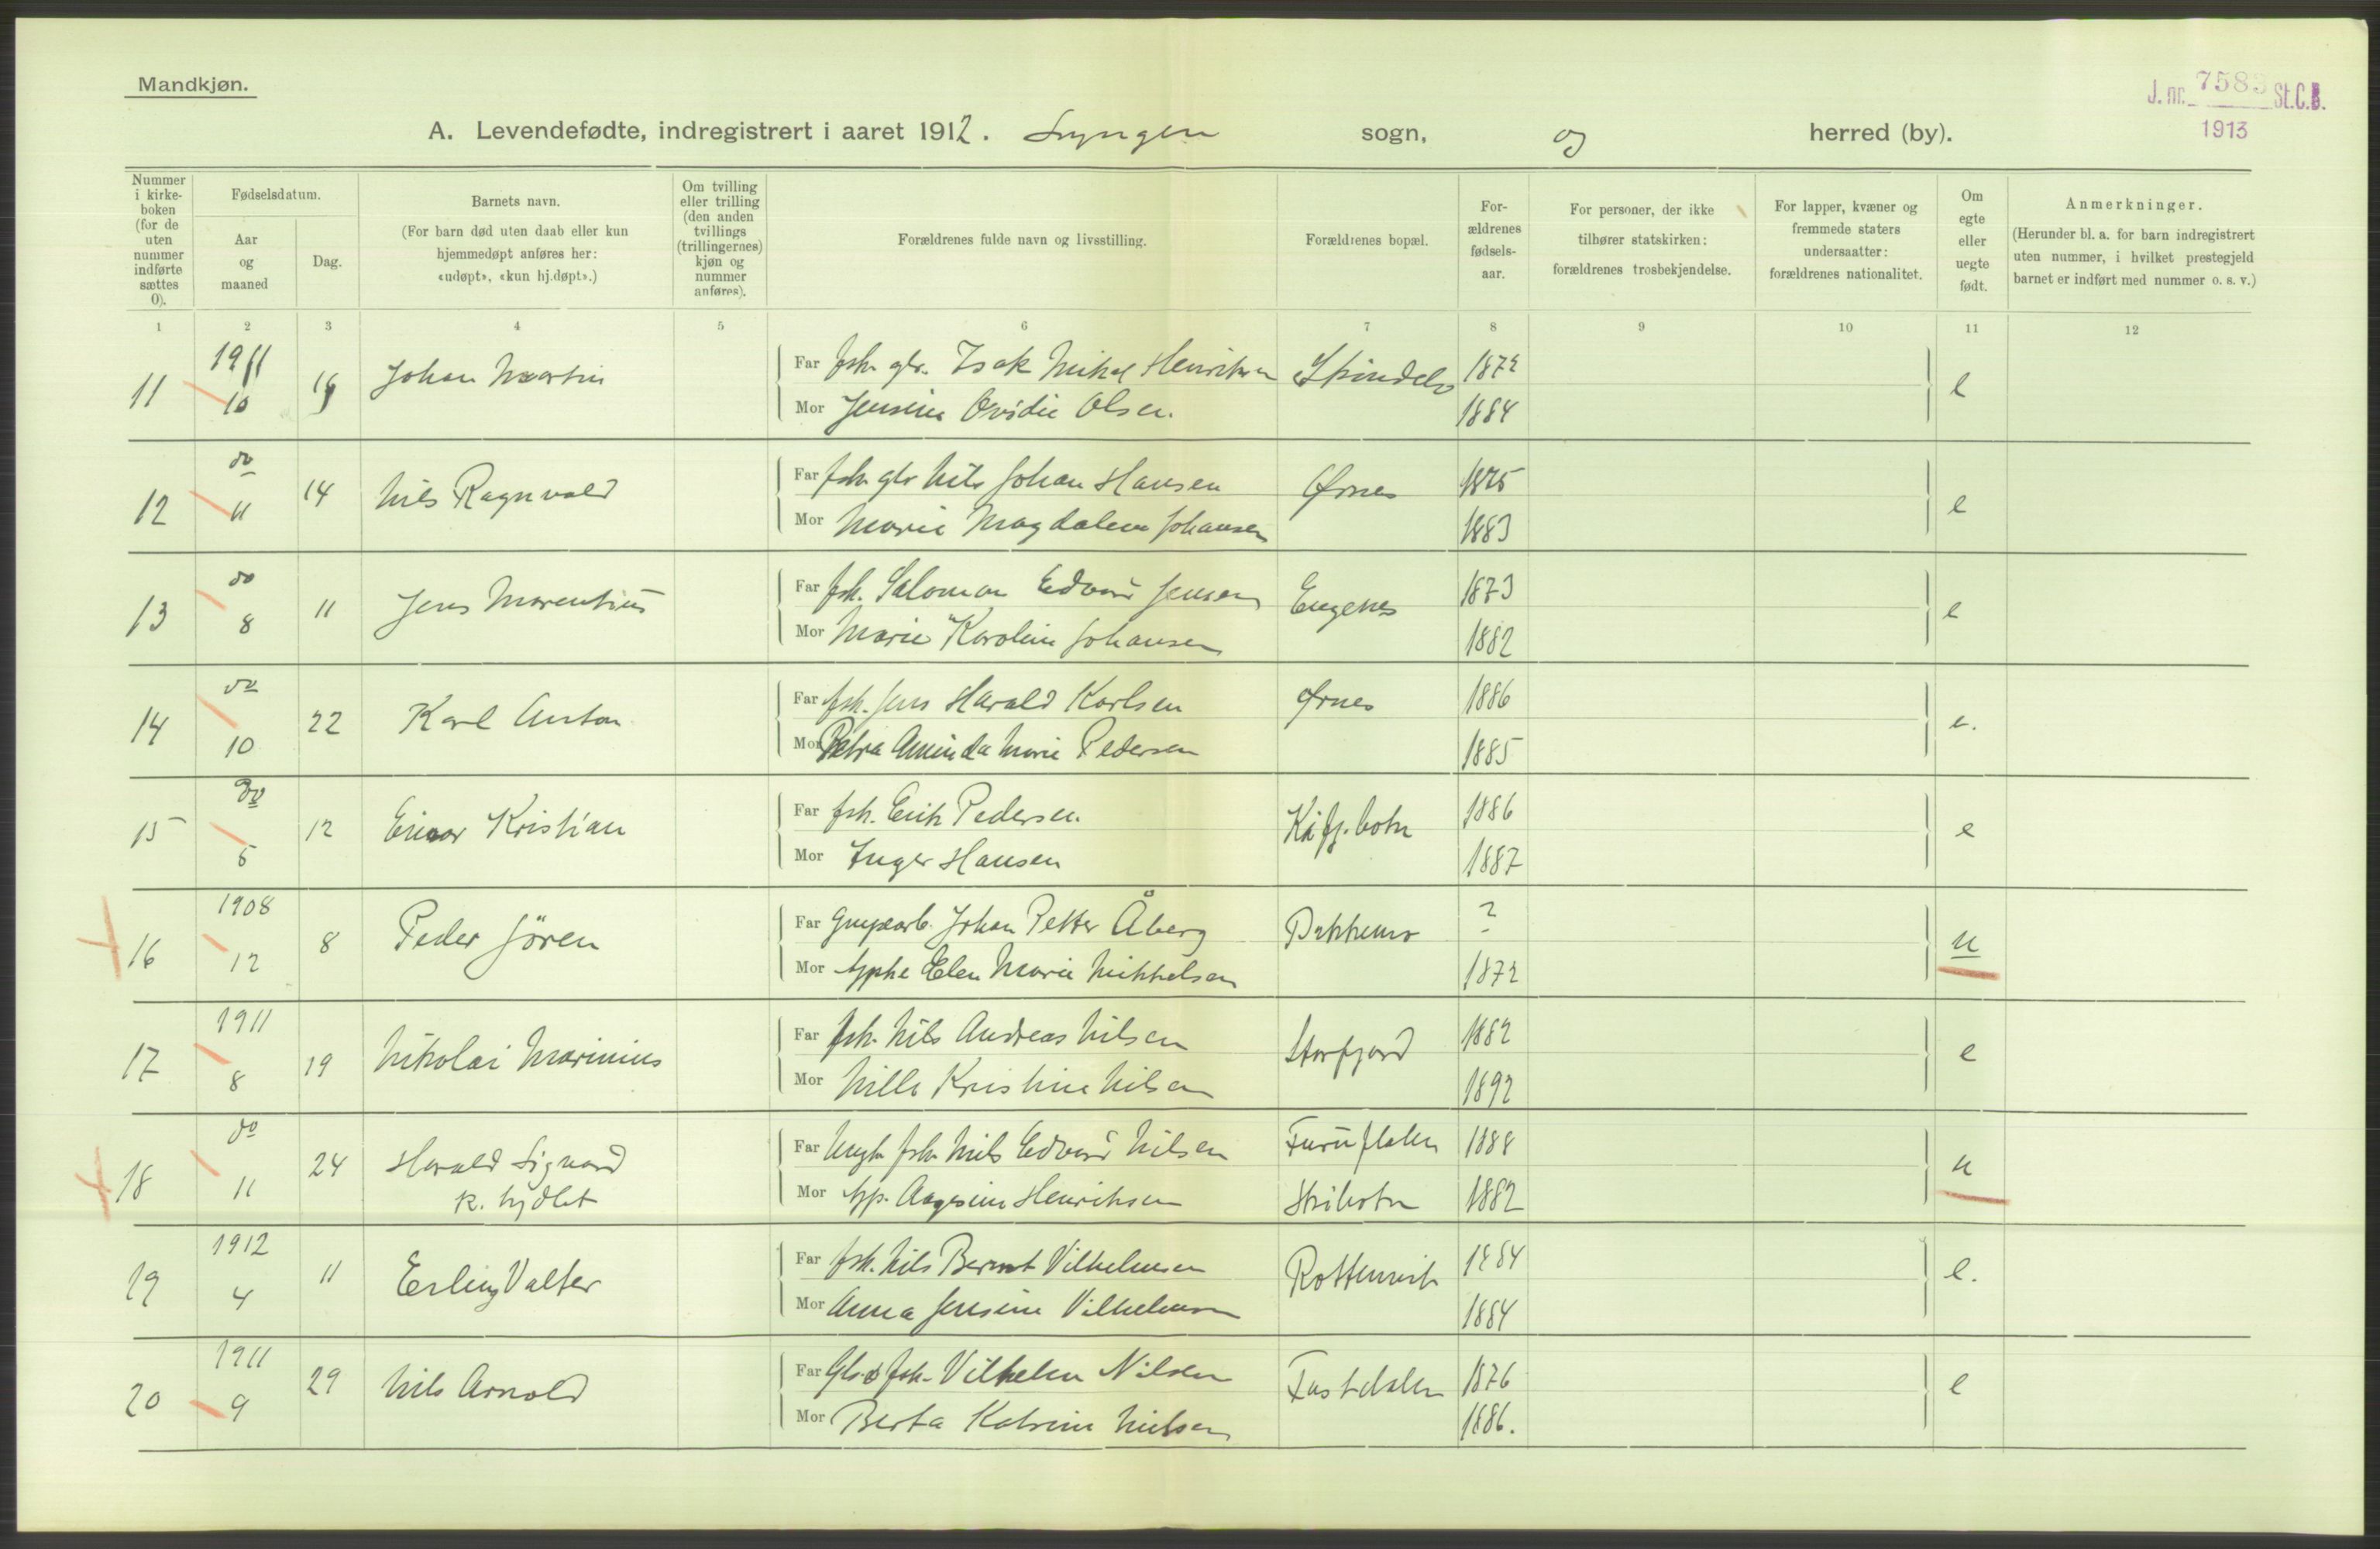 Mandkjøn.
J. nr. 7583 St.C.B.
1913
A. Levendefødte, indregistrert i aaret 1912. Lyngen sogn, og herred (by).
Nummer i kirke-boken (for de uten nummer indførte sættes 0).
Fødselsdatum.
Aar og maaned
Dag.
Barnets navn.
(For barn død uten daab eller kun hjemmedøpt anføres her: «udøpt», «kun hj.døpt».)
Om tvilling eller trilling (den anden tvillings (trillingernes) kjøn og nummer anføres).
Forældrenes fulde navn og livsstilling.
Forældrenes bopæl.
For-ældrenes fødsels-aar.
For personer, der ikke tilhører statskirken: forældrenes trosbekjendelse.
For lapper, kvæner og fremmede staters undersaatter: forældrenes nationalitet.
Om egte eller uegte født.
Anmerkninger.
(Herunder bl. a. for barn indregistrert uten nummer, i hvilket prestegjeld barnet er indført med nummer o. s. v.)
1 2 3 4 5 6 7 8 9 10 11 12
11 1911 10 Johan Martin Far fisk. gbr. Isak Mikal Henriksen 1872 e
Mor Jensine Ovidie Olsen. 1884
12 do 11 14 Nils Ragnvald Far fisk. gbr Nils Johan Hansen Ørnes 1875 e
Mor Marie Magdalene Johansen 1883
13 do 8 11 Jens Marentius Far fisk. Salomon Edvard Jensen Engenes 1873 e
Mor Marie Karoline Johansen 1882
14 do 10 22 Karl Anton Far fisk. Jens Harald Karlsen Ørnes 1886 e.
Mor Petra Aminda Marie Pedersen 1885
15 do 5 12 Einar Kristian Far fisk. Erik Pedersen. Kåfj. botn 1886 e
Mor Inger Hansen 1887
16 1908 12 8 Peder Jören Far Johan Petter Åberg ? u
Mor Elen Marie Mikkelsen 1872
17 1911 8 19 Nikolai Marinius Far fisk. Nils Andreas Nilsen Storfjord 1882 e
Mor Nille Kristine Nilsen 1892
18 do 11 24 Harald Sigvard Far Ungk. fisk Nils Edvard Nilsen Furuflaten 1888 u
k. hjdbt Mor Aagesine Henriksen Skibotn 1882
19 1912 4 11 Erling Valter Far fisk. Nils Bernt Vilhelmsen Rottenvik 1884 e.
Mor Anna Jensine Vilhelmsen 1884
20 1911 9 29 Nils Arnold Far Gbr. & fisk. Vilhelm Nilsen Fastdalen 1876 e
Mor Berta Katrine Nielsen 1886.